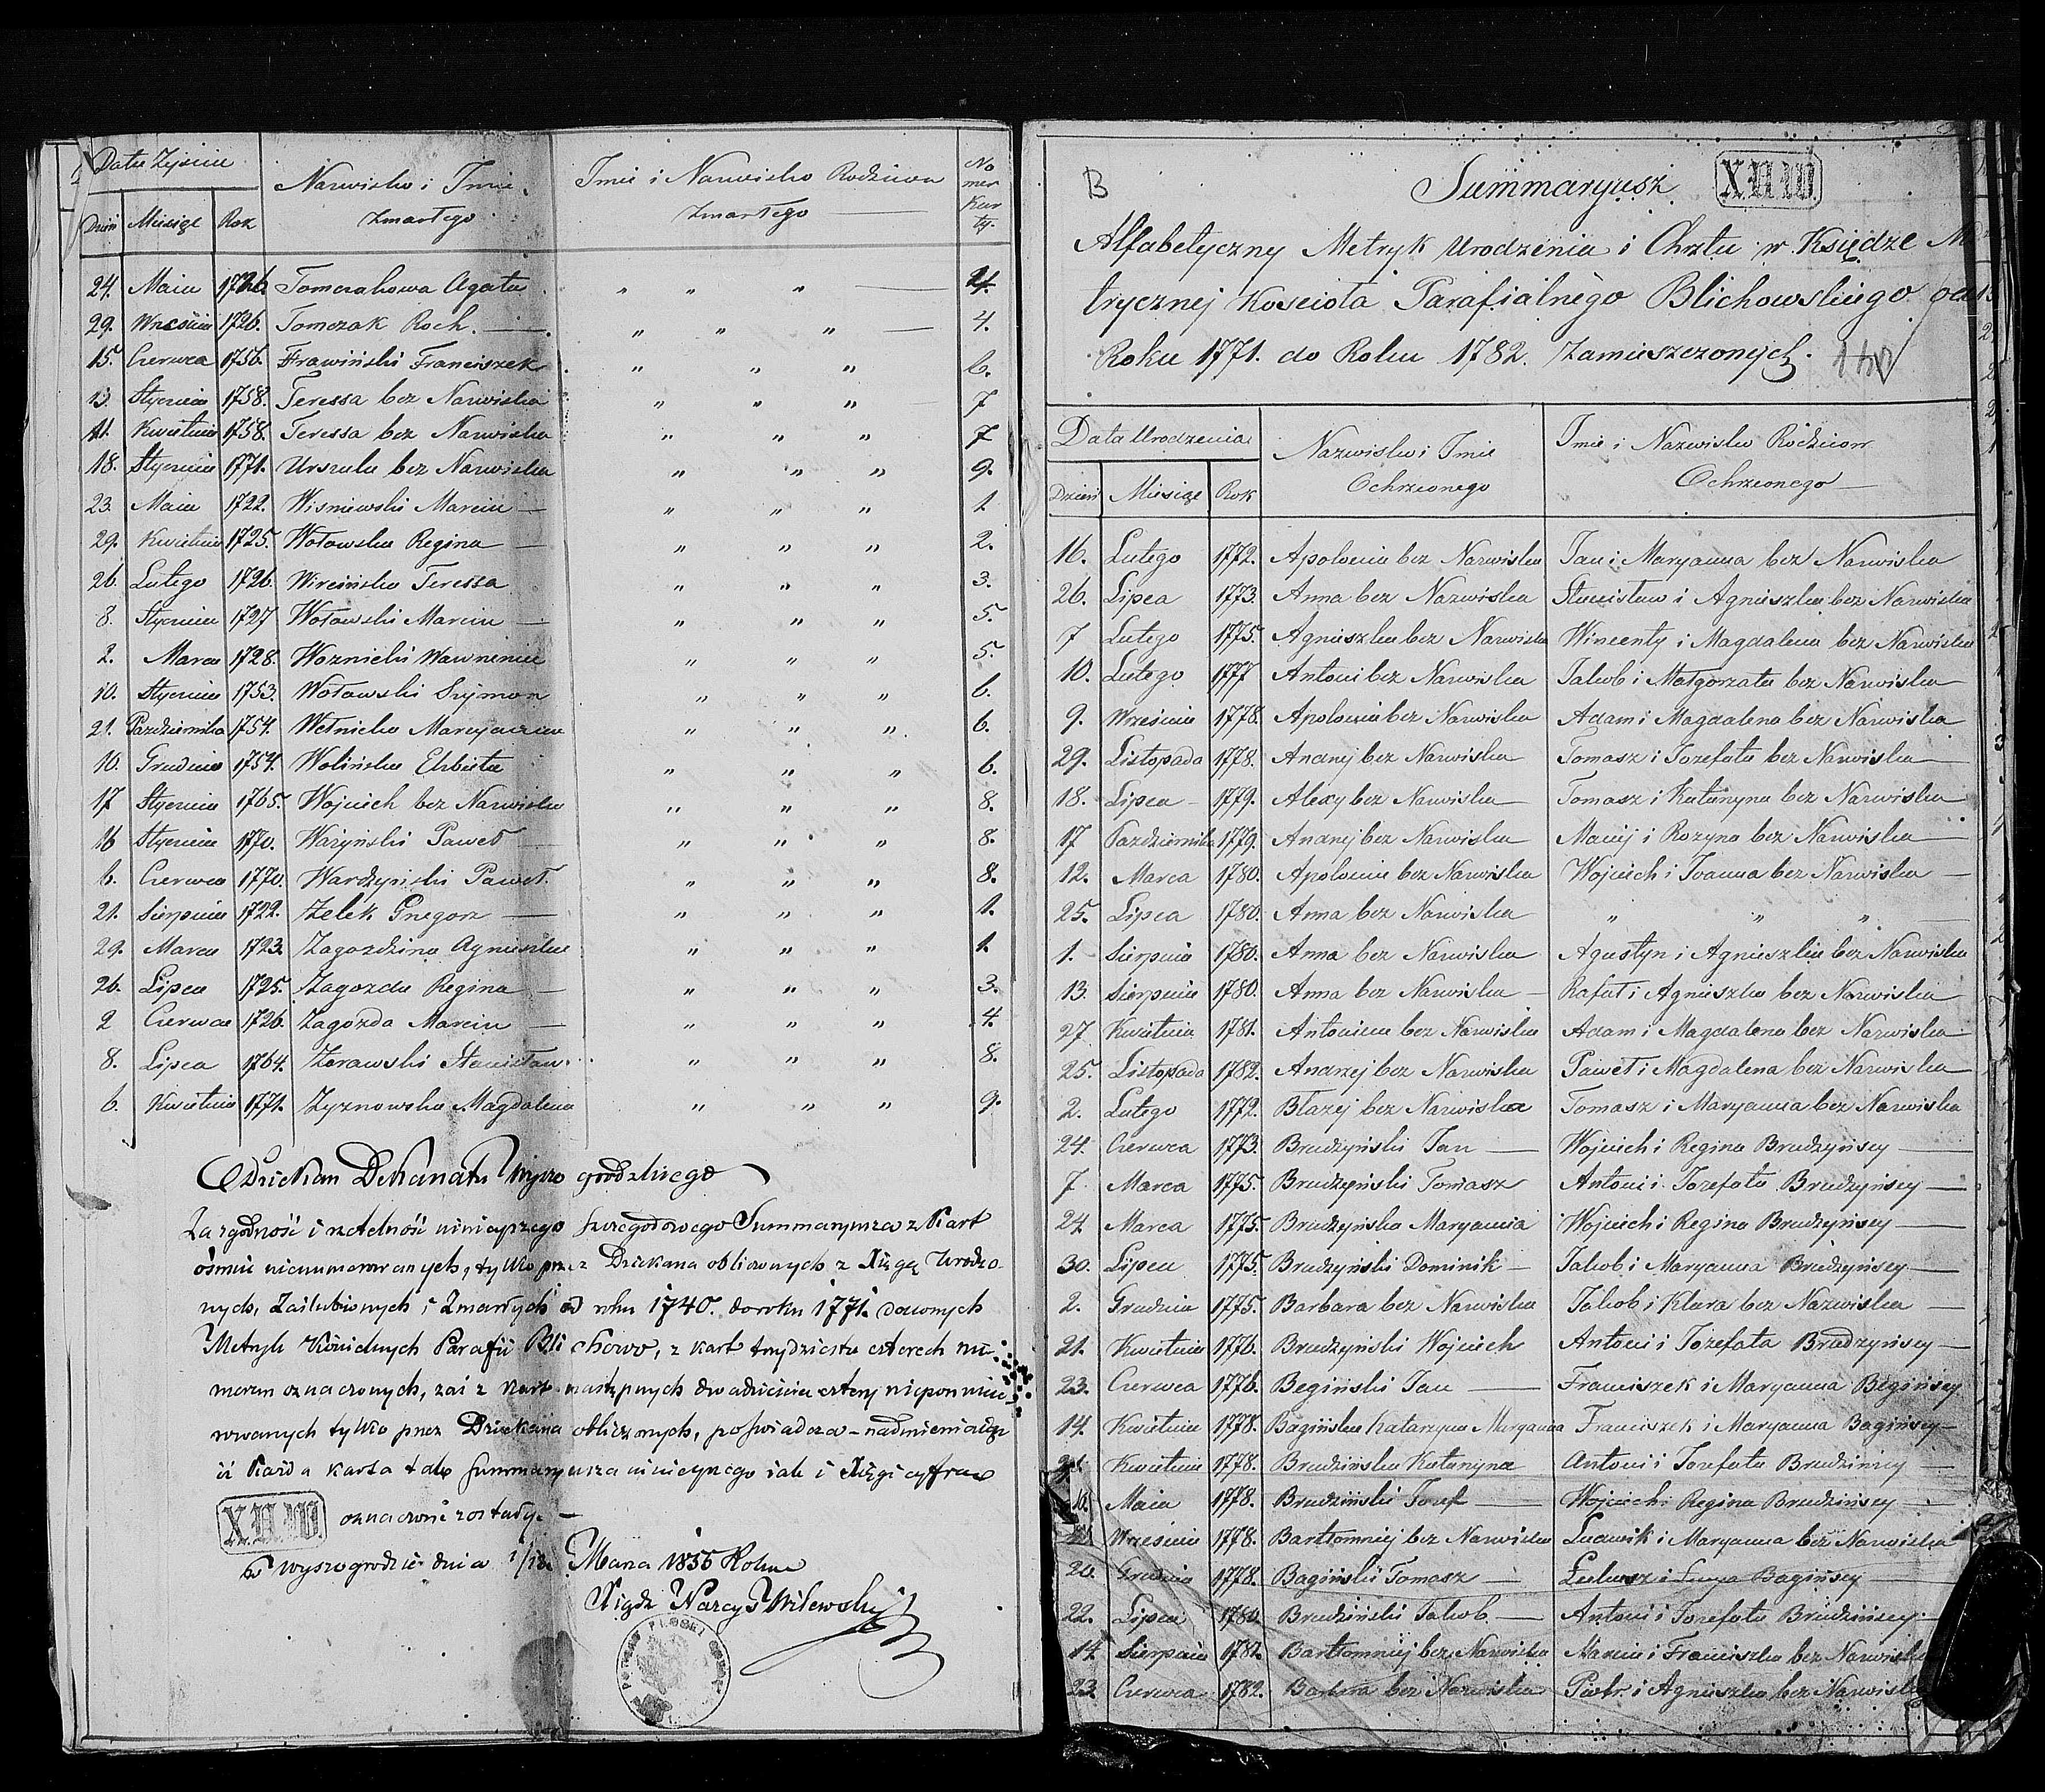 Data Zejścia
Nazwisko i Imie
Zmarłego
Imie i Nazwisko Rodziców
Zmarłego
No
mer
Kar
ty.
Dzień Miesiąc Rok
24. Maia 1726. Tomczakowa Agata " " " 4.
29. Września 1726. Tomczak Roch. " " " 4.
15. Czerwca 1756. Trawiński Franciszek " " " 6.
13. Stycznia 1758. Teressa bez Nazwiska " " " 7
11. Kwietnia 1758. Teressa bez Nazwiska " " " 7
18. Stycznia 1771. Urszula bez Nazwiska " " " 9.
23. Maia 1722. Wisniewski Marcin " " " 1
29. Kwietnia 1725. Wołowska Regina " " " 2.
26. Lutego 1726. Wireińska Teressa " " " 3.
8. Stycznia 1727 Wołowski Marcin " " " 5.
2. Marca 1728. Woznicki Wawrzeniec " " " 5.
10. Stycznia 1753. Wołowski Szymon " " " 6.
21. Pazdziernika 1754. Wetnicka Maryanna " " " 6.
10. Grudnia 1754. Wolińska Elzbieta " " " 6.
17 Stycznia 1765. Wojciech bez Nazwiska " " " 8.
16 Stycznia 1770. Wazyński Paweł " " " 8.
6. Czerwca 1770. Wardzyński Paweł. " " " 8.
21. Sierpnia 1722. Zelek Grzegorz " " " 1.
29. Marca 1723. Zagozdzina Agnieszka " " " 1.
26. Lipca 1725. Zagozda Regina " " " 3.
2 Czerwca 1726. Zagozda Marcin " " " 4.
8. Lipca 1764. Zorawski Stanisław. " " " 8.
6. Kwietnia 1771. Zyznowska Magdalena " " " 9.
Dziekan Dekanatu Wyszogrodzkiego
Za zgodność i rzetelność ninieyszego Summaryusza z Kart
ośmiu nienumerowanych, tylko przez Dziekana obliczonych z Xięgą Urodzo
nych, Zaślubionych i Zmarłych od roku 1740. do roku 1771. dawnych
Metryk Kościelnych Parafii Blichowo, z kart trzydziestu czterech nu
merem oznaczonych, zaś z kart następnych dwadzieścia cztery nieponume
rowanych tylko przez Dziekana obliczonych, poświadcza – nadmieniając
iż Każda karta tak Summaryusza ninieyszego iak i Xięgi cyfrą
X.N.W. oznaczone zostały. –
w Wyszogrodzie dnia 1/13 Marca 1855 Roku
Xiądz Narcys Wilewski
B
Summaryusz X.N.W.
Alfabetyczny Metryk Urodzenia i Chrztu w Księdze Me
trycznej Koscioła Parafialnego Blichowskiego od
Roku 1771. do Roku 1782. Zamieszczonych.
Data Urodzenia
Nazwisko i Imie
Ochrzconego
Imie i Nazwisko Rodziców
Ochrzconego
Dzień Miesiąc Rok
16. Lutego 1772. Apolonia bez Nazwiska Jan i Maryanna bez Nazwiska
26. Lipca 1773. Anna bez Nazwiska Stanisław i Agnieszka bez Nazwiska
7 Lutego 1775. Agnieszka bez Nazwiska Wincenty i Magdalena bez Nazwiska
10. Lutego 1777 Antoni bez Nazwiska Jakob i Małgorzata bez Nazwiska
9. Wrzesnia 1778. Apolonia bez Nazwiska Adam i Magdalena bez Nazwiska
29. Listopada 1778. Andrzej bez Nazwiska Tomasz i Jozefata bez Nazwiska
18. Lipca 1779. Alexy bez Nazwiska Tomasz i Katarzyna bez Nazwiska
17 Pazdziernika 1779. Andrzej bez Nazwiska Maciej i Rozyna bez Nazwiska
12. Marca 1780. Apolonia bez Nazwiska Wojciech i Joanna bez Nazwiska
25. Lipca 1780. Anna bez Nazwiska " " "
1. Sierpnia 1780. Anna bez Nazwiska Agustyn i Agnieszka bez Nazwiska
13. Sierpnia 1780. Anna bez Nazwiska Rafał i Agnieszka bez Nazwiska
27. Kwietnia 1781. Antonina bez Nazwiska Adam i Magdalena bez Nazwiska
25. Listopada 1782. Andrzej bez Nazwiska Paweł i Magdalena bez Nazwiska
2. Lutego 1772. Błazej bez Nazwiska Tomasz i Maryanna bez Nazwiska
24. Czerwca 1773. Brudzyński Jan Wojciech i Regina Brudzyńscy
7. Marca 1775. Brudzyński Tomasz Antoni i Jozefata Brudzyńscy
24 Marca 1775. Brudzyńska Maryanna Wojciech i Regina Brudzyńscy
30. Lipca 1775. Brudzyński Dominik Jakob i Maryanna Brudzyńscy
2. Grudnia 1775. Barbara bez Nazwiska Jakob i Klara bez Nazwiska
21. Kwietnia 1776. Brudzyński Wojciech Antoni i Jozefata Brudzyńscy
23. Czerwca 1776. Begiński Jan Franciszek i Maryanna Begińscy
14. Kwietnia 1778. Bagińska Katarzyna Maryanna Franciszek i Maryanna Bagińscy
Kwietnia 1778. Brudzińska Katarzyna Antoni i Jozefata Brudzińscy
Maia 1778. Brudziński Jozef Wojciech i Regina Brudzińscy
Wrzesnia 1778. Bartłomniej bez Nazwiska Ludwik i Maryanna bez Nazwiska
20. Grudnia 1778. Bagiński Tomasz Łukasz i Bagińscy
22. Lipca 1780. Brudziński Jakob Antoni i Jozefata Brudzińscy
14. Sierpnia 1782. Bartłomniej bez Nazwiska Marcin i Franciszka bez Nazwiska
23. Czerwca 1782. Barbara bez Nazwiska Piotr i Agnieszka bez Nazwiska